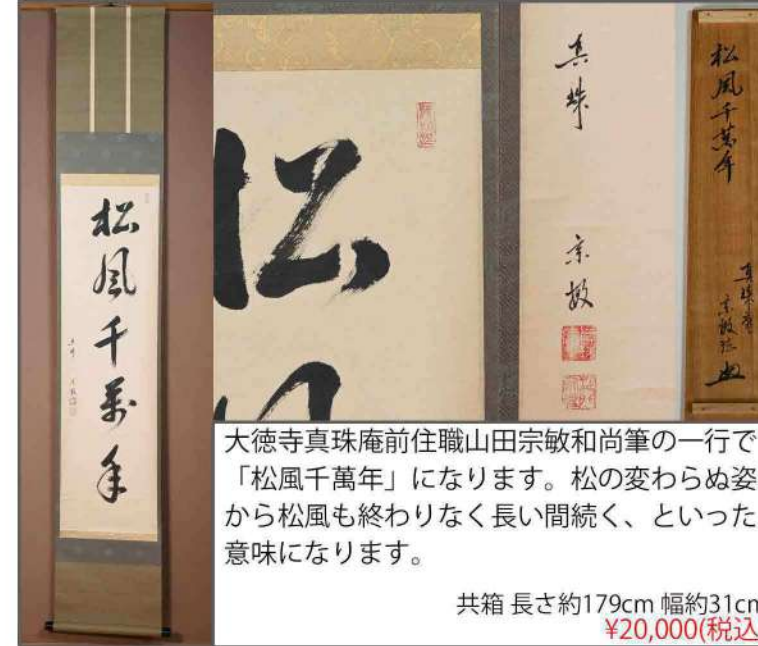 松風千萬年
松
真珠
宗敏
松風千萬年
真珠庵
大徳寺真珠庵前住職山田宗敏和尚筆の一行で
「松風千萬年」になります。松の変わらぬ姿
から松風も終わりなく長い間続く、といった
意味になります。
共箱 長さ約179cm 幅約31cm
¥20,000(税込